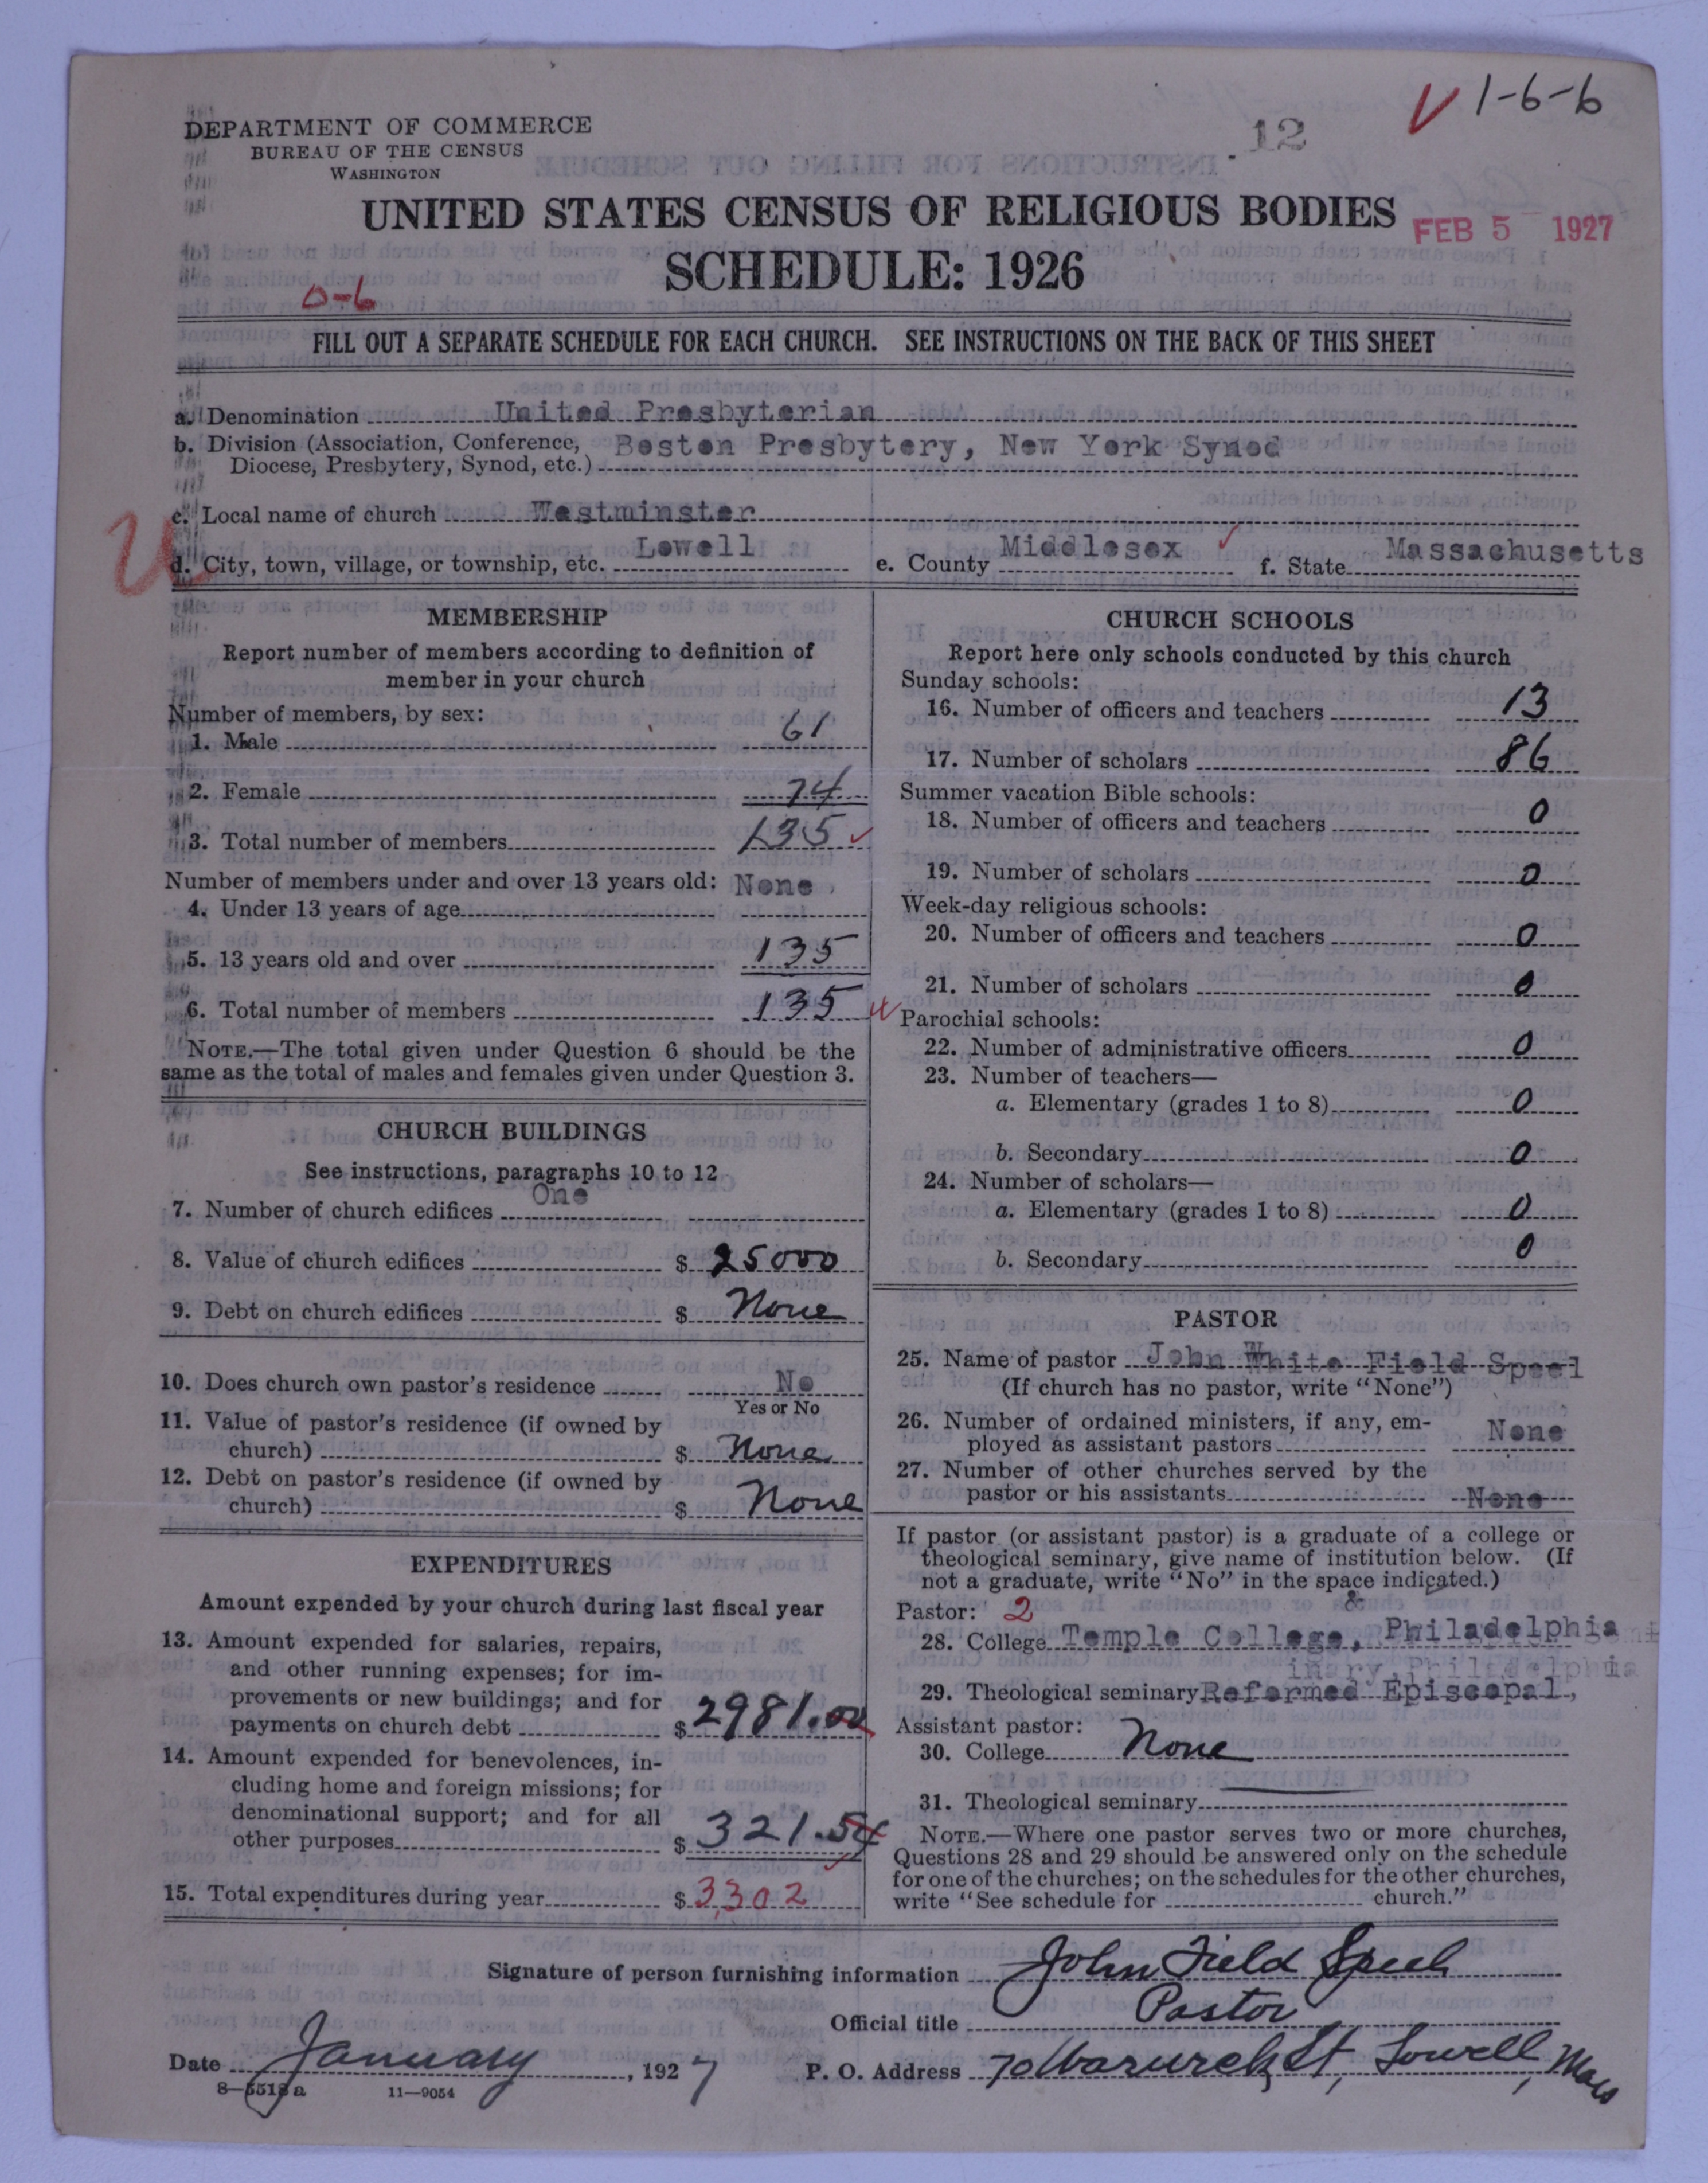 1-6-6
12
DEPARTMENT OF COMMERCE
BUREAU OF THE CENSUS
WASHINGTON
UNITED STATES CENSUS OF RELIGIOUS BODIES
FEB 5 1927
SCHEDULE: 1926
0-6
FILL OUT A SEPARATE SCHEDULE FOR EACH CHURCH. SEE INSTRUCTIONS ON THE BACK OF THIS SHEET
a. Denomination United Presbyterian
b. Division (Association, Conference, Boston Presbytery, New York Synod
Diocese, Presbytery, Synod, etc.)
c. Local name of church Westminster
d. City, town, village, or township, etc. Lowell e. County Middlesex f. State Massachusetts
MEMBERSHIP
Report number of members according to definition of
member in your church
Number of members, by sex:
1. Male 61
2. Female 74
3. Total number of members 135
Number of members under and over 13 years old: None
4. Under 13 years of age
5. 13 years old and over 135
6. Total number of members 135
NOTE.—The total given under Question 6 should be the
same as the total of males and females given under Question 3.
CHURCH BUILDINGS
See instructions, paragraphs 10 to 12
7. Number of church edifices One
8. Value of church edifices $ 25000
9. Debt on church edifices $ None
10. Does church own pastor's residence No
Yes or No
11. Value of pastor's residence (if owned by
church) $ None
12. Debt on pastor's residence (if owned by
church) $ None
EXPENDITURES
Amount expended by your church during last fiscal year
13. Amount expended for salaries, repairs,
and other running expenses; for im-
provements or new buildings; and for
payments on church debt $ 2981.00
14. Amount expended for benevolences, in-
cluding home and foreign missions; for
denominational support; and for all
other purposes $ 321.54
15. Total expenditures during year $ 3,302
CHURCH SCHOOLS
Report here only schools conducted by this church
Sunday schools:
16. Number of officers and teachers 13
17. Number of scholars 86
Summer vacation Bible schools:
18. Number of officers and teachers 0
19. Number of scholars 0
Week-day religious schools:
20. Number of officers and teachers 0
21. Number of scholars 0
Parochial schools:
22. Number of administrative officers 0
23. Number of teachers—
a. Elementary (grades 1 to 8) 0
b. Secondary 0
24. Number of scholars—
a. Elementary (grades 1 to 8) 0
b. Secondary 0
PASTOR
25. Name of pastor John White Field Speel
(If church has no pastor, write "None")
26. Number of ordained ministers, if any, em-
ployed as assistant pastors None
27. Number of other churches served by the
pastor or his assistants None
If pastor (or assistant pastor) is a graduate of a college or
theological seminary, give name of institution below. (If
not a graduate, write "No" in the space indicated.)
Pastor: 2 &
28. College Temple College, Philadelphia
inary, Philadelphia
29. Theological seminary Reformed Episcopal,
Assistant pastor:
30. College None
31. Theological seminary
NOTE.—Where one pastor serves two or more churches,
Questions 28 and 29 should be answered only on the schedule
for one of the churches; on the schedules for the other churches,
write "See schedule for church."
Signature of person furnishing information John Field Speel
Official title Pastor
Date January, 1927 P. O. Address 70 Warwick St, Lowell, Mass
8—5518a 11—9054